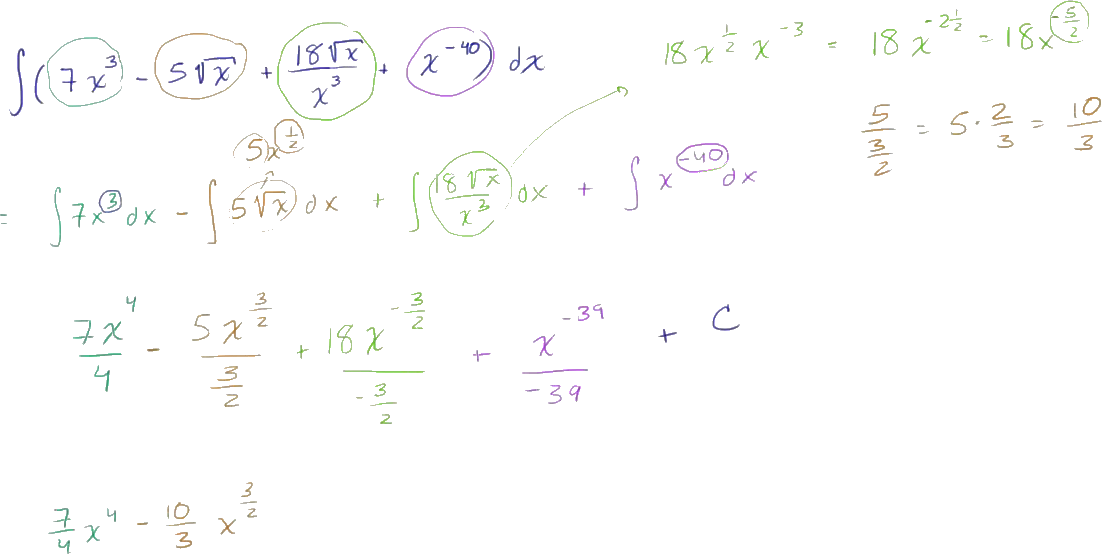 ∫(7x³ - 5√x + 18√x/x³ + x⁻⁴⁰) dx
18x^(1/2) x⁻³ = 18x^(-2 1/2) = 18x^(-5/2)
5/(3/2) = 5 · 2/3 = 10/3
5x^(1/2)
= ∫7x³ dx - ∫5√x dx + ∫18√x/x³ dx + ∫x⁻⁴⁰ dx
7x⁴/4 - 5x^(3/2)/(3/2) + 18x^(-3/2)/(-3/2) + x⁻³⁹/-39 + C
7/4 x⁴ - 10/3 x^(3/2)